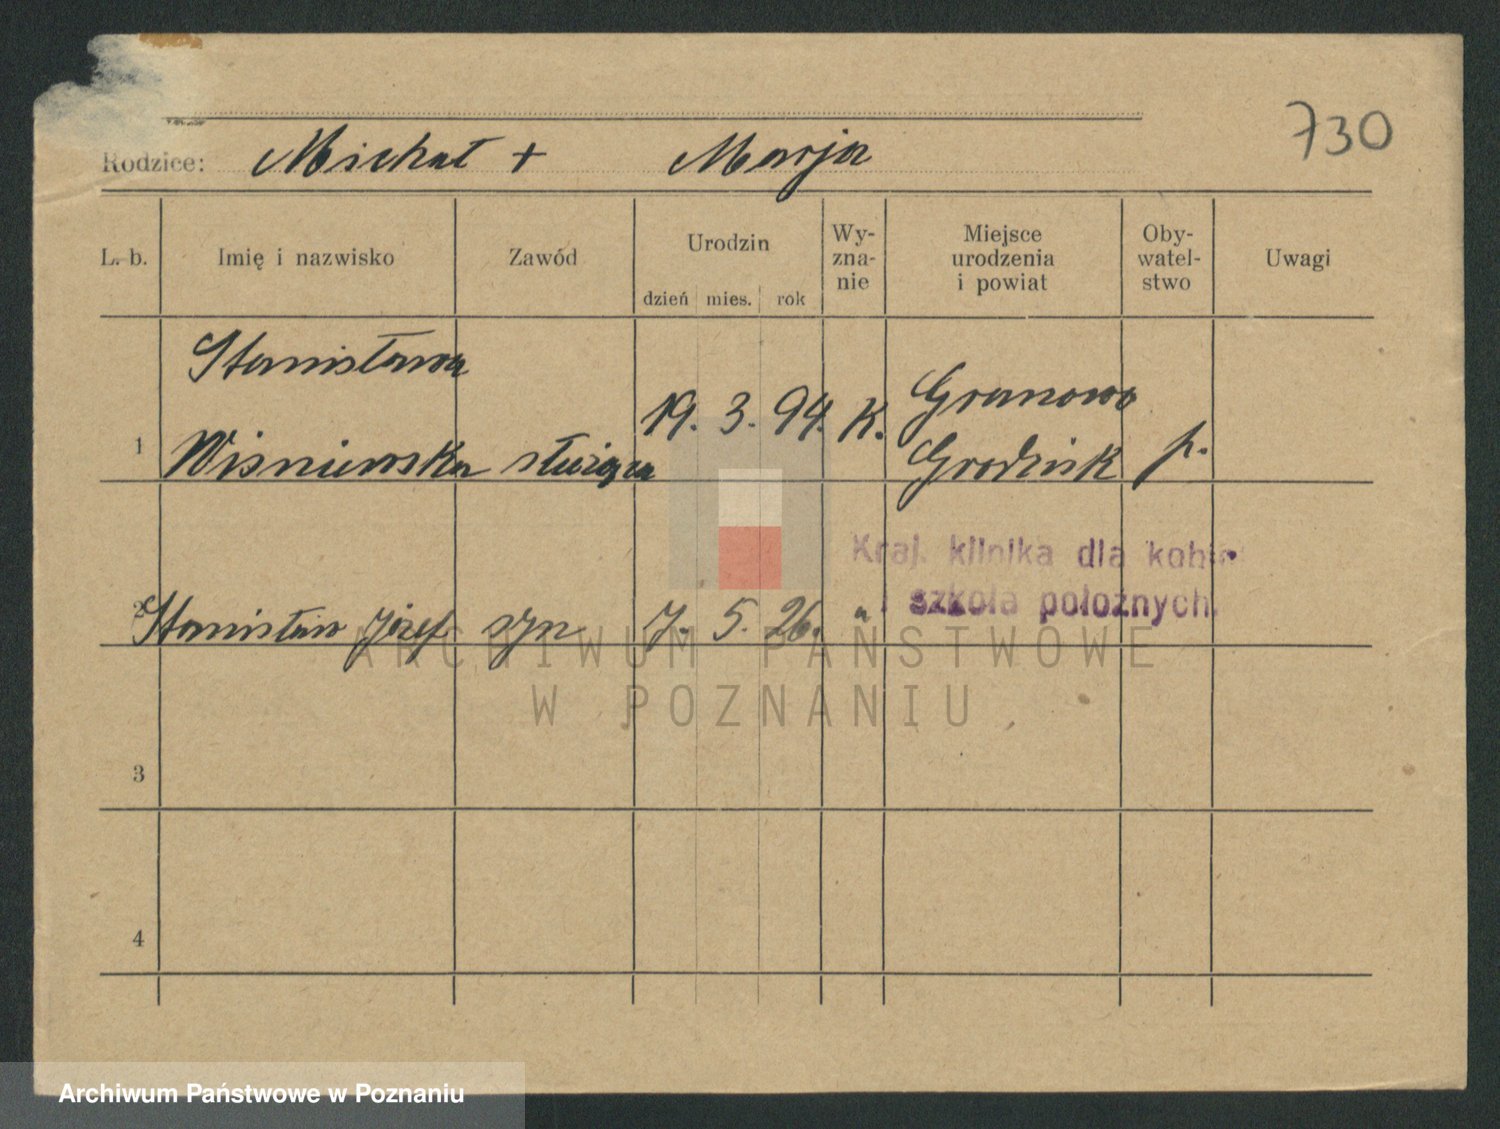 730
Rodzice: Michał + Marja
L. b. Imię i nazwisko Zawód Urodzin dzień mies. rok Wy-zna-nie Miejsce urodzenia i powiat Oby-watel-stwo Uwagi
Stanisława
1 Wiśniewska służąca 19. 3. 94. K. Granowo
Grodzisk p.
Kraj. klinika dla kobie
i szkoła położnych.
2 Stanisław Józef syn 7. 5. 26. "
ARCHIWUM PAŃSTWOWE
W POZNANIU
3
4
Archiwum Państwowe w Poznaniu